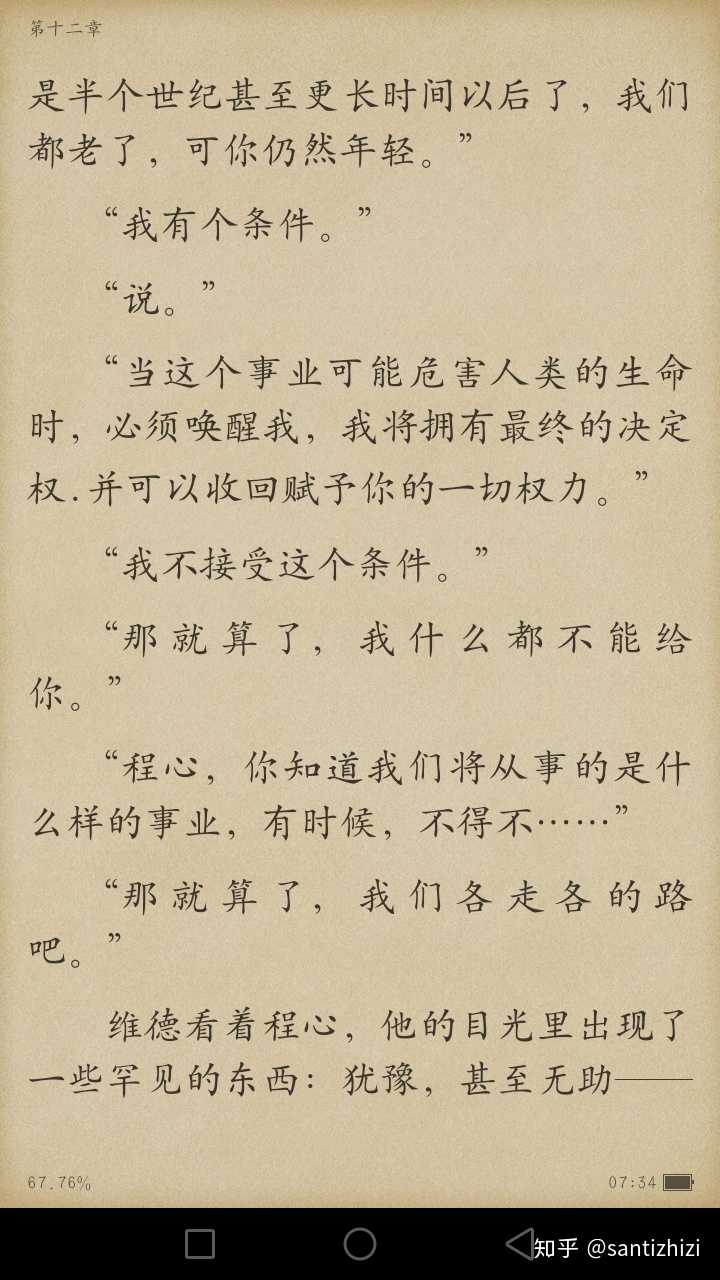 第十二章
是半个世纪甚至更长时间以后了，我们
都老了，可你仍然年轻。”
“我有个条件。”
“说。”
“当这个事业可能危害人类的生命
时，必须唤醒我，我将拥有最终的决定
权.并可以收回赋予你的一切权力。”
“我不接受这个条件。”
“那就算了，我什么都不能给
你。”
“程心，你知道我们将从事的是什
么样的事业，有时候，不得不……”
“那就算了，我们各走各的路
吧。”
维德看着程心，他的目光里出现了
一些罕见的东西：犹豫，甚至无助——
67.76%
07:34
知乎 @santizhizi